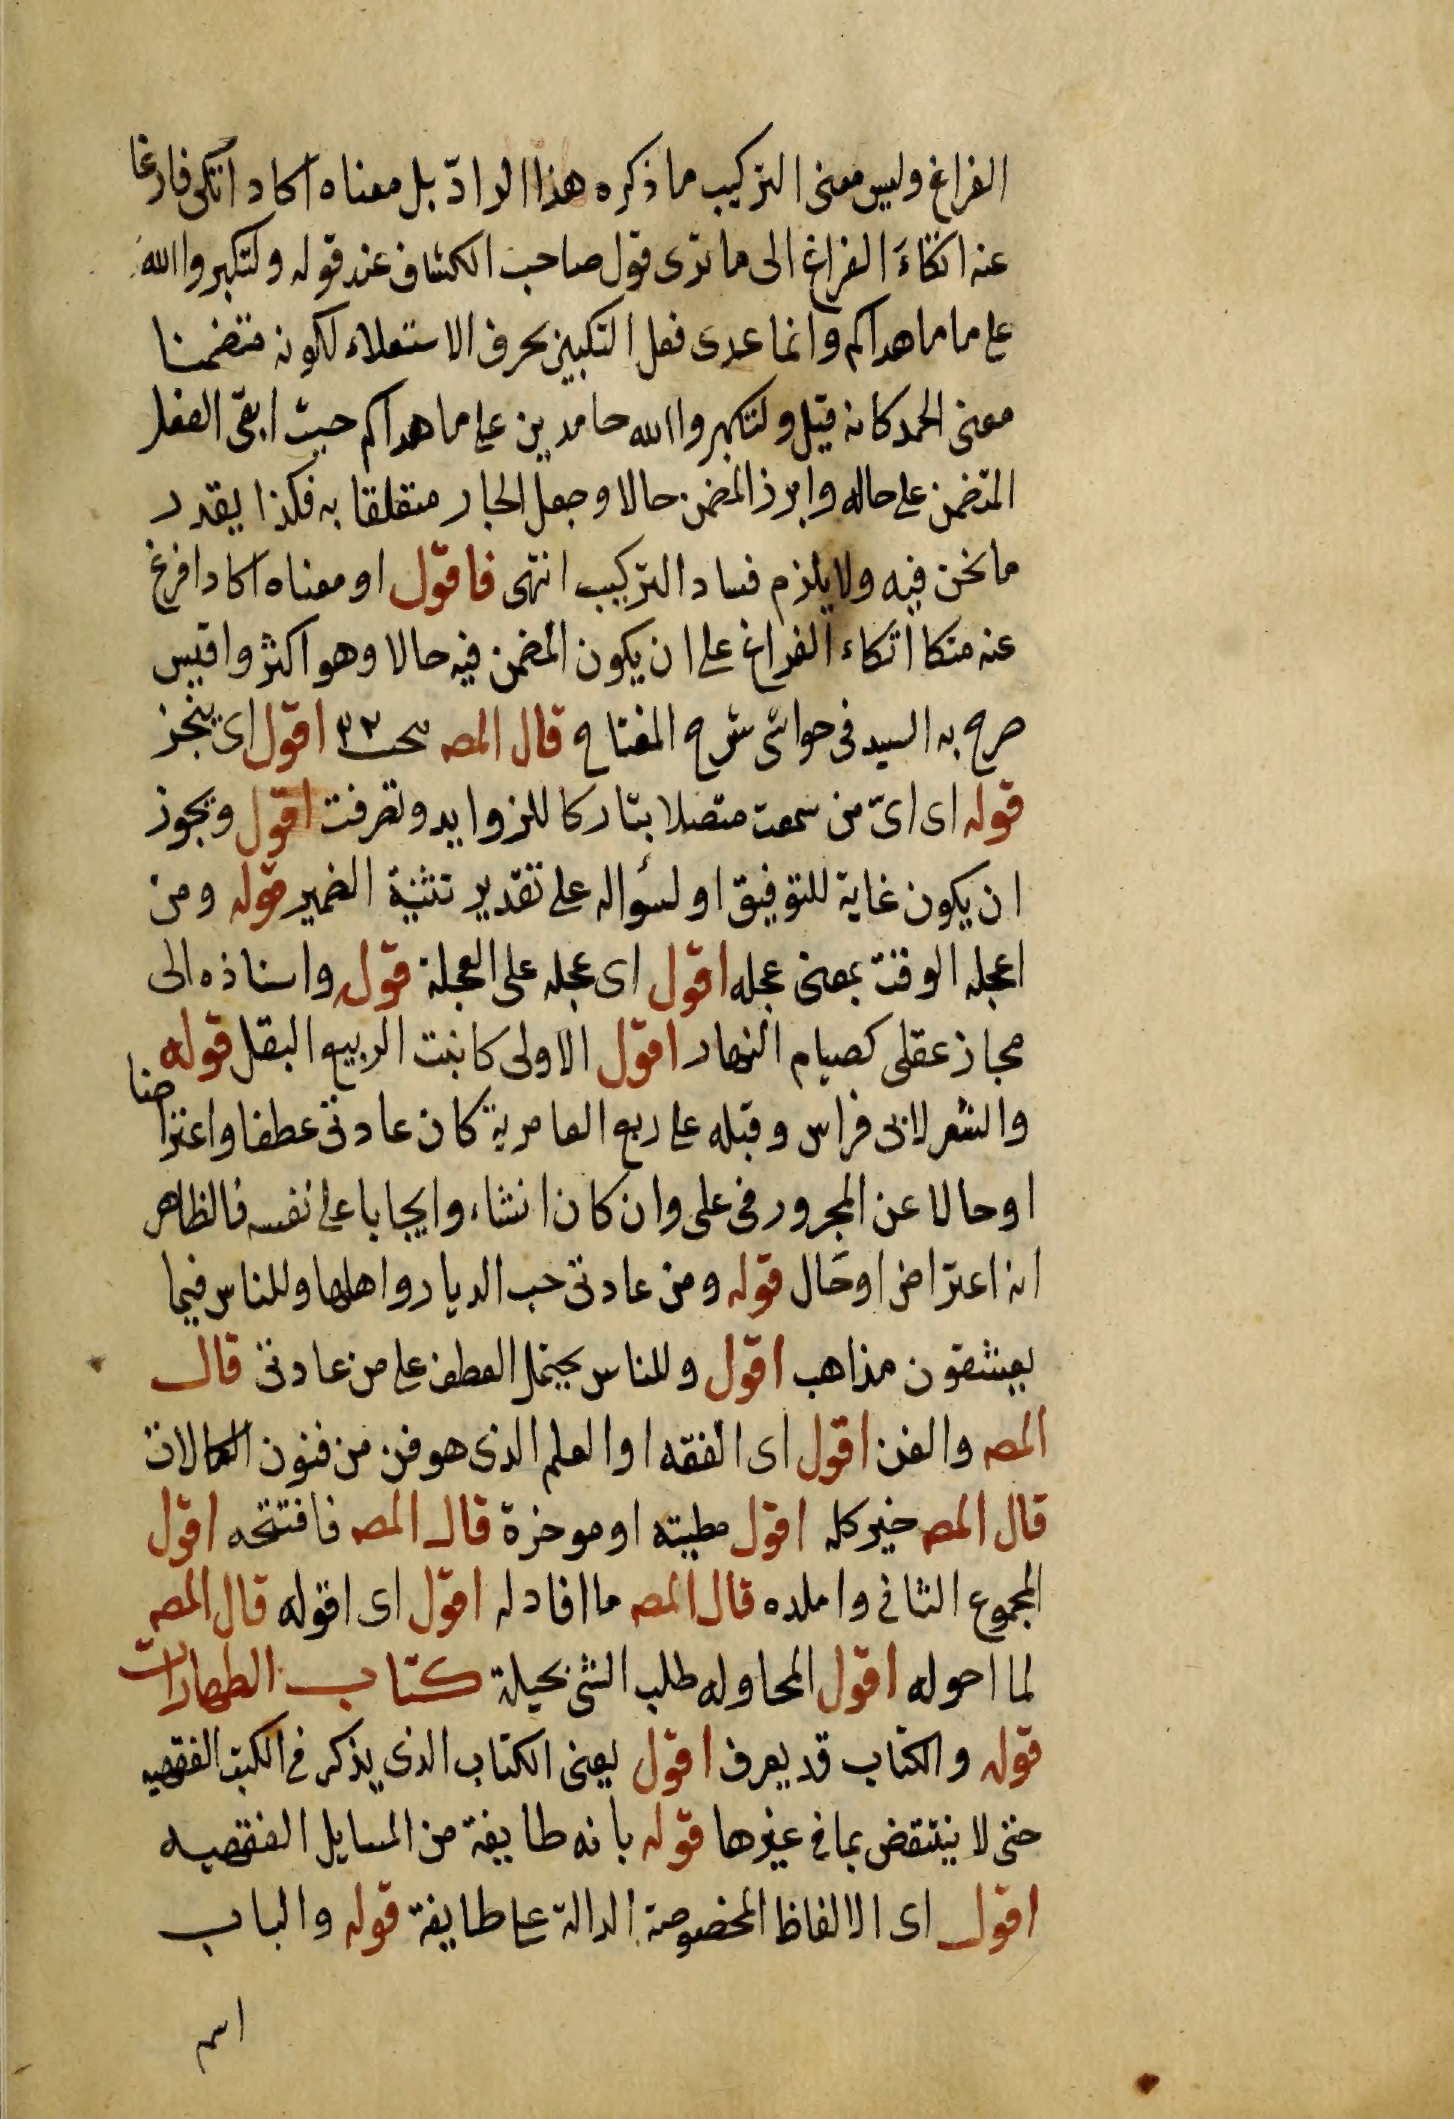 الفراغ وليس معنى التركيب ما ذكره هذا الراد بل معناه اكاد اتكى فارغا
عنه اتكاءَ الفراغ الى ما ترى قول صاحب الكشاف عند قوله ولتكبروا الله
على ما ما هداكم وانما عدى فعل التكبير بحرف الاستعلاء لكونه متضمنا
معنى الحمد كانه قيل ولتكبروا الله حامدين على ما هداكم حيث ابقى الفعل
المتضمن على حاله وابرز المضمن حالا وجعل الجار متعلقا به فكذا يقدر
ما نحن فيه ولا يلزم فساد التركيب انتهى فاقول او معناه اكاد افرغ
عنه متكا اتكاء الفراغ على ان يكون المضمن فيه حالا وهو اكثر واقيس
صرح به السيد فى حواشى شرح المفتاح قال المصه اقول اى ينجز
قوله اى اىّ من سمعت متصلا بتاركا للزوايد وتعرفت اقول ويجوز
ان يكون غاية للتوفيق او لسؤاله على تقدير تثنية الضمير قوله ومن
اعجله الوقت بمعنى عجله اقول اى عجله على العجلة قوله واسناده الى
مجاز عقلى كصيام النهار اقول الاولى كانبت الربيع البقل قوله
والشعر لابى فراس وقبله على ربع العامرية كان عادتى عطفا واعتراضا
او حالا عن المجرور فى على وان كان انشاء وايجابا على نفسه فالظاهر
انه اعتراض او حال قوله ومن عادتى حب الديار واهلها وللناس فيما
يعشقون مذاهب اقول وللناس يحتمل العطف على من عادتى قال
المصه والفن اقول اى الفقه او العلم الذى هو فن من فنون الكمالات
قال المصه خير كله اقول مطيته او موخرة قال المصه فافتتحه اقول
المجموع الثانى واملده قال المصه ما افادله اقول اى اقوله قال المصه
لما احوله اقول المحاوله طلب الشئ بحيلة كتاب الطهارات
قوله والكتاب قد يعرف اقول يعنى الكتاب الذى يذكر فى الكتب الفقهيه
حتى لا ينتقض بما فى غيرها قوله بانه طايفة من المسايل الفقهيه
اقول اى الالفاظ المخصوصة الدالة على طايفة قوله والباب
اسم